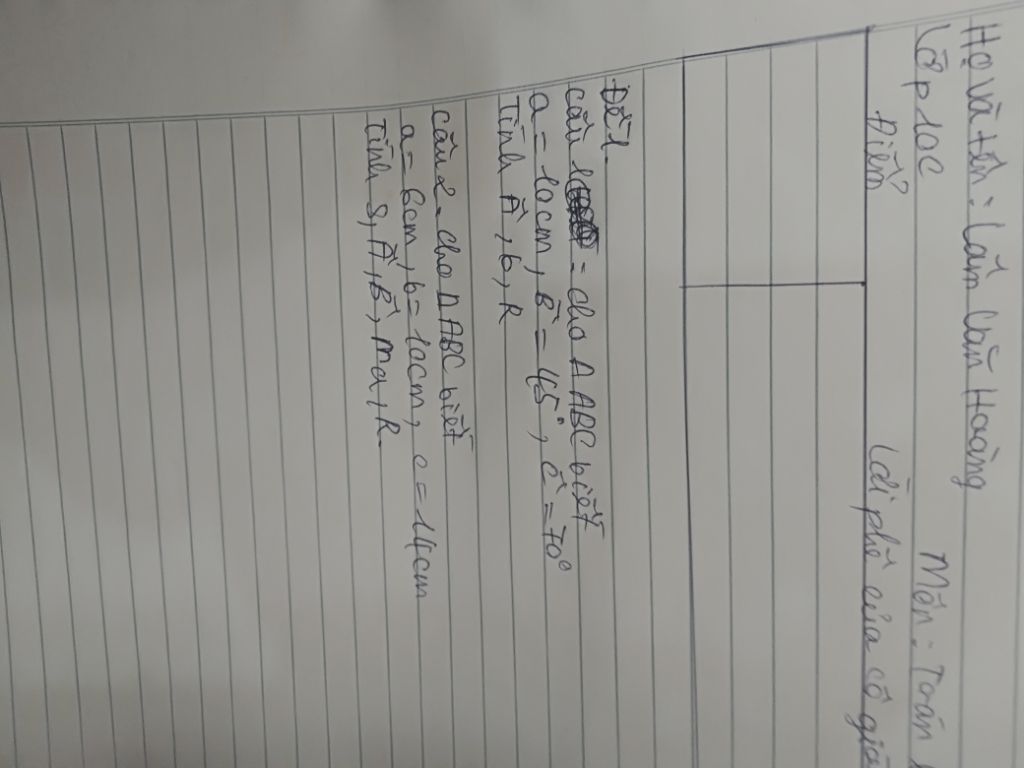 Họ và tên: Lần Cần Hoàng
Lớp 10C Môn: Toán
Điểm Lời phê của cô giáo
Đề 1
Câu 1: cho Δ ABC biết
a = 10cm, B̂ = 45°, Ĉ = 70°
Tính Â, b, R
Câu 2: cho Δ ABC biết
a = 6cm, b = 10cm, c = 14cm
Tính S, Â, B̂, ma, R.